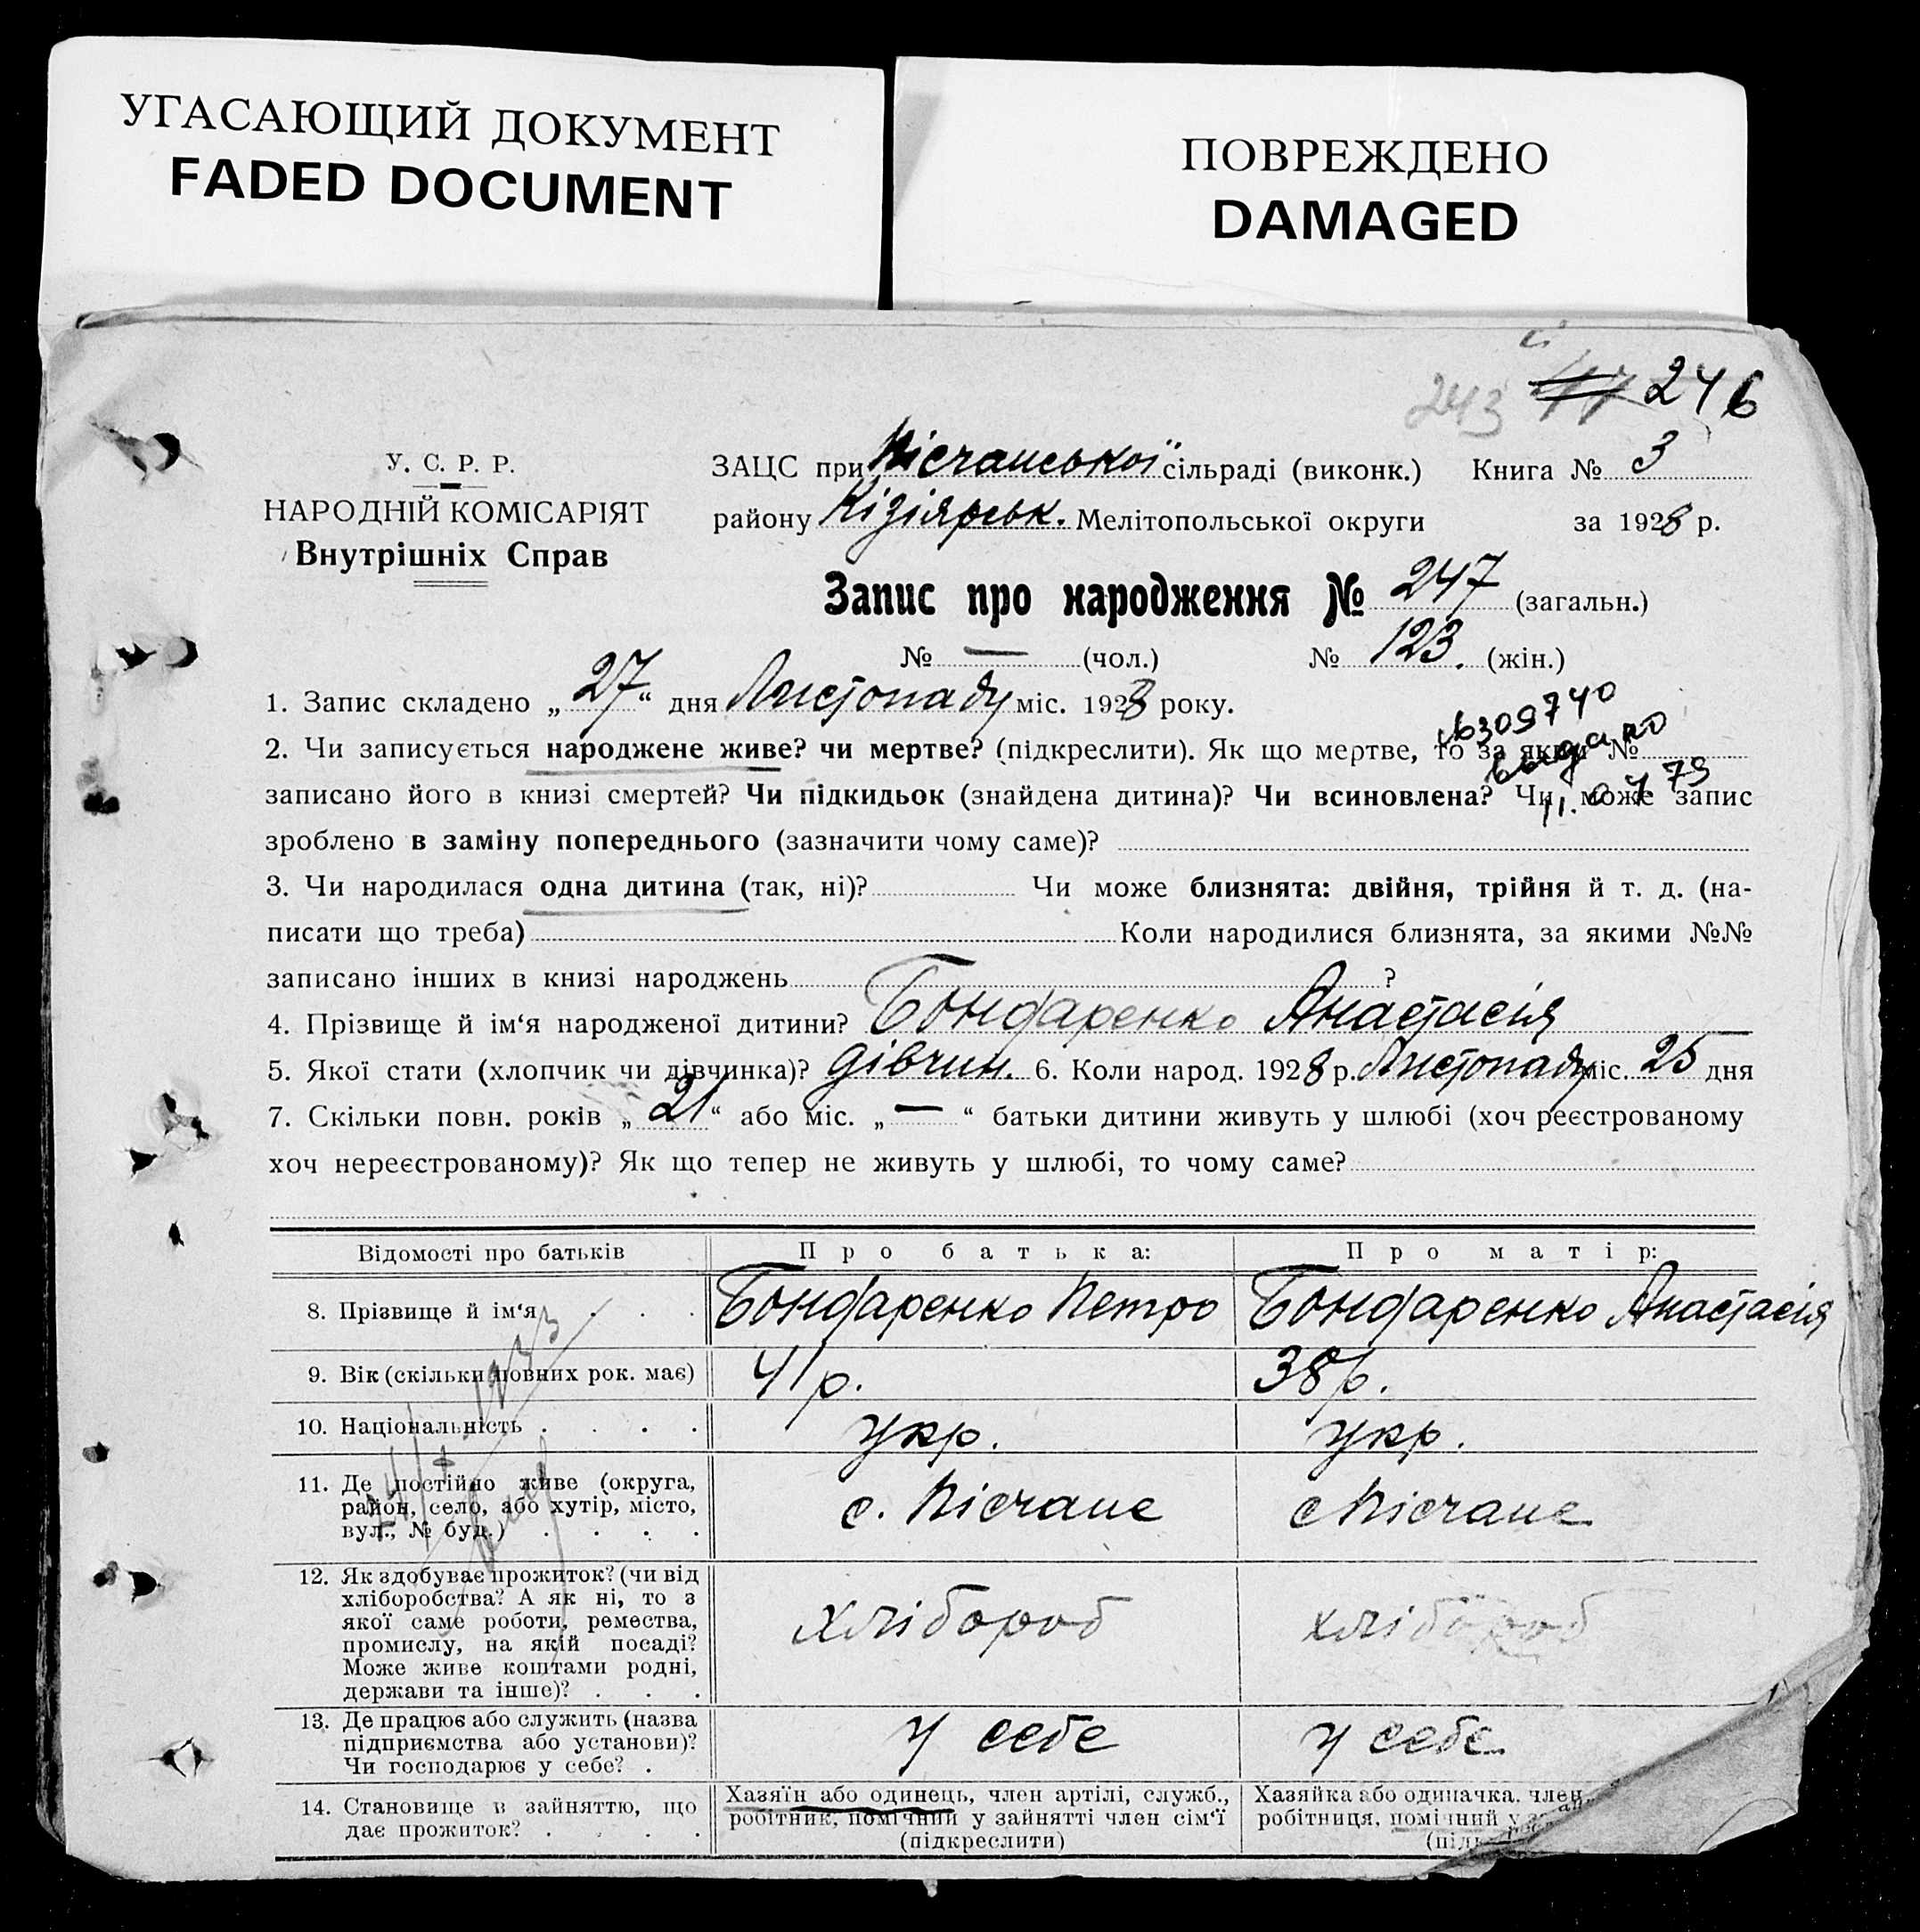 УГАСАЮЩИЙ ДОКУМЕНТ
FADED DOCUMENT
ПОВРЕЖДЕНО
DAMAGED
243 246
У. С. Р. Р.
НАРОДНІЙ КОМІСАРІЯТ
Внутрішніх Справ
ЗАЦС при Пісчанської сільраді (виконк.) Книга № 3
району Кізіярськ. Мелітопольської округи за 1928 р.
Запис про народження № 247 (загальн.)
№ — (чол.) № 123. (жін.)
1. Запис складено „27“ дня Листопаду міс. 1928 року.
№309740
выдано
11. 0 7 79
2. Чи записується народжене живе? чи мертве? (підкреслити). Як що мертве, то за яким №
записано його в книзі смертей? Чи підкидьок (знайдена дитина)? Чи всиновлена? Чи може запис
зроблено в заміну попереднього (зазначити чому саме)?
3. Чи народилася одна дитина (так, ні)? Чи може близнята: двійня, трійня й т. д. (на-
писати що треба) Коли народилися близнята, за якими №№
записано інших в книзі народжень ?
4. Прізвище й ім‘я народженої дитини? Бондаренко Анастасія
5. Якої стати (хлопчик чи дівчинка)? дівчин. 6. Коли народ. 1928 р. Листопаду міс. 25 дня
7. Скільки повн. років „21“ або міс. „—“ батьки дитини живуть у шлюбі (хоч реєстрованому
хоч нереєстрованому)? Як що тепер не живуть у шлюбі, то чому саме?
Відомості про батьків Про батька: Про матір:
8. Прізвище й ім‘я . . . Бондаренко Петро Бондаренко Анастасія
9. Вік (скільки повних рок. має) 41 р. 38 р.
10. Національність . . . . укр. укр.
11. Де постійно живе (округа,
район, село, або хутір, місто,
вул., № буд.) . . . .
с. Пісчане с Пісчане
12. Як здобуває прожиток? (чи від
хліборобства? А як ні, то з
якої саме роботи, ремества,
промислу, на якій посаді?
Може живе коштами родні,
держави та інше)? . . .
хлібороб хлібороб
13. Де працює або служить (назва
підприємства або установи)?
Чи господарює у себе? .
у себе у себе
14. Становище в зайняттю, що
дає прожиток? . . . .
Хазяїн або одинець, член артілі, служб.,
робітник, помічний у зайнятті член сім‘ї
(підкреслити)
Хазяйка або одиначка, член
робітниця, помічний у
1933